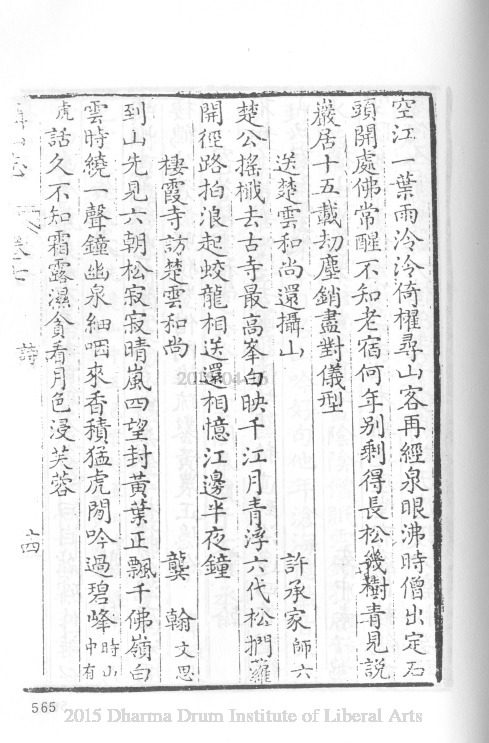 空江一葉雨泠泠倚櫂尋山客再經泉眼沸時僧出定石
頭開處佛常醒不知老宿何年別剩得長松幾樹青見說
巖居十五載劫塵銷盡對儀型
送楚雲和尚還攝山
許承家師六
楚公搖檝去古寺最高峯白映千江月青浮六代松捫蘿
開徑路拍浪起蛟龍相送還相憶江邊半夜鐘
棲霞寺訪楚雲和尚
龔翰文思
到山先見六朝松寂寂晴嵐四望封黃葉正飄千佛嶺白
雲時繞一聲鐘幽泉細咽來香積猛虎閒吟過碧峰時山中有
虎話久不知霜露濕貪看月色浸芙蓉
詩
十四
565
2015 Dharma Drum Institute of Liberal Arts